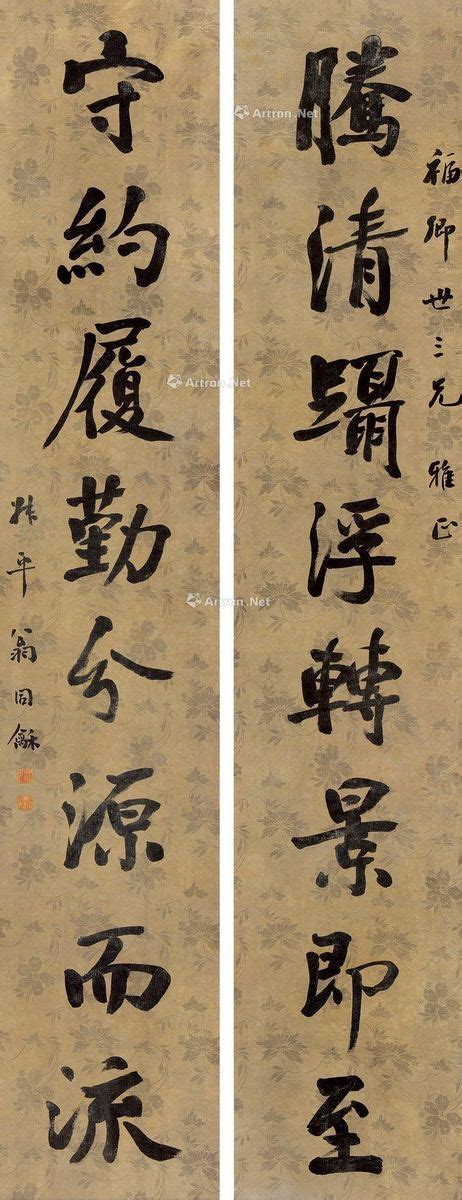 福卿世三兄 雅正
騰清躡浮轉景即至
守約履勤分源而流
叔平翁同龢
Artron.Net
Artron.Net
Artron.Net